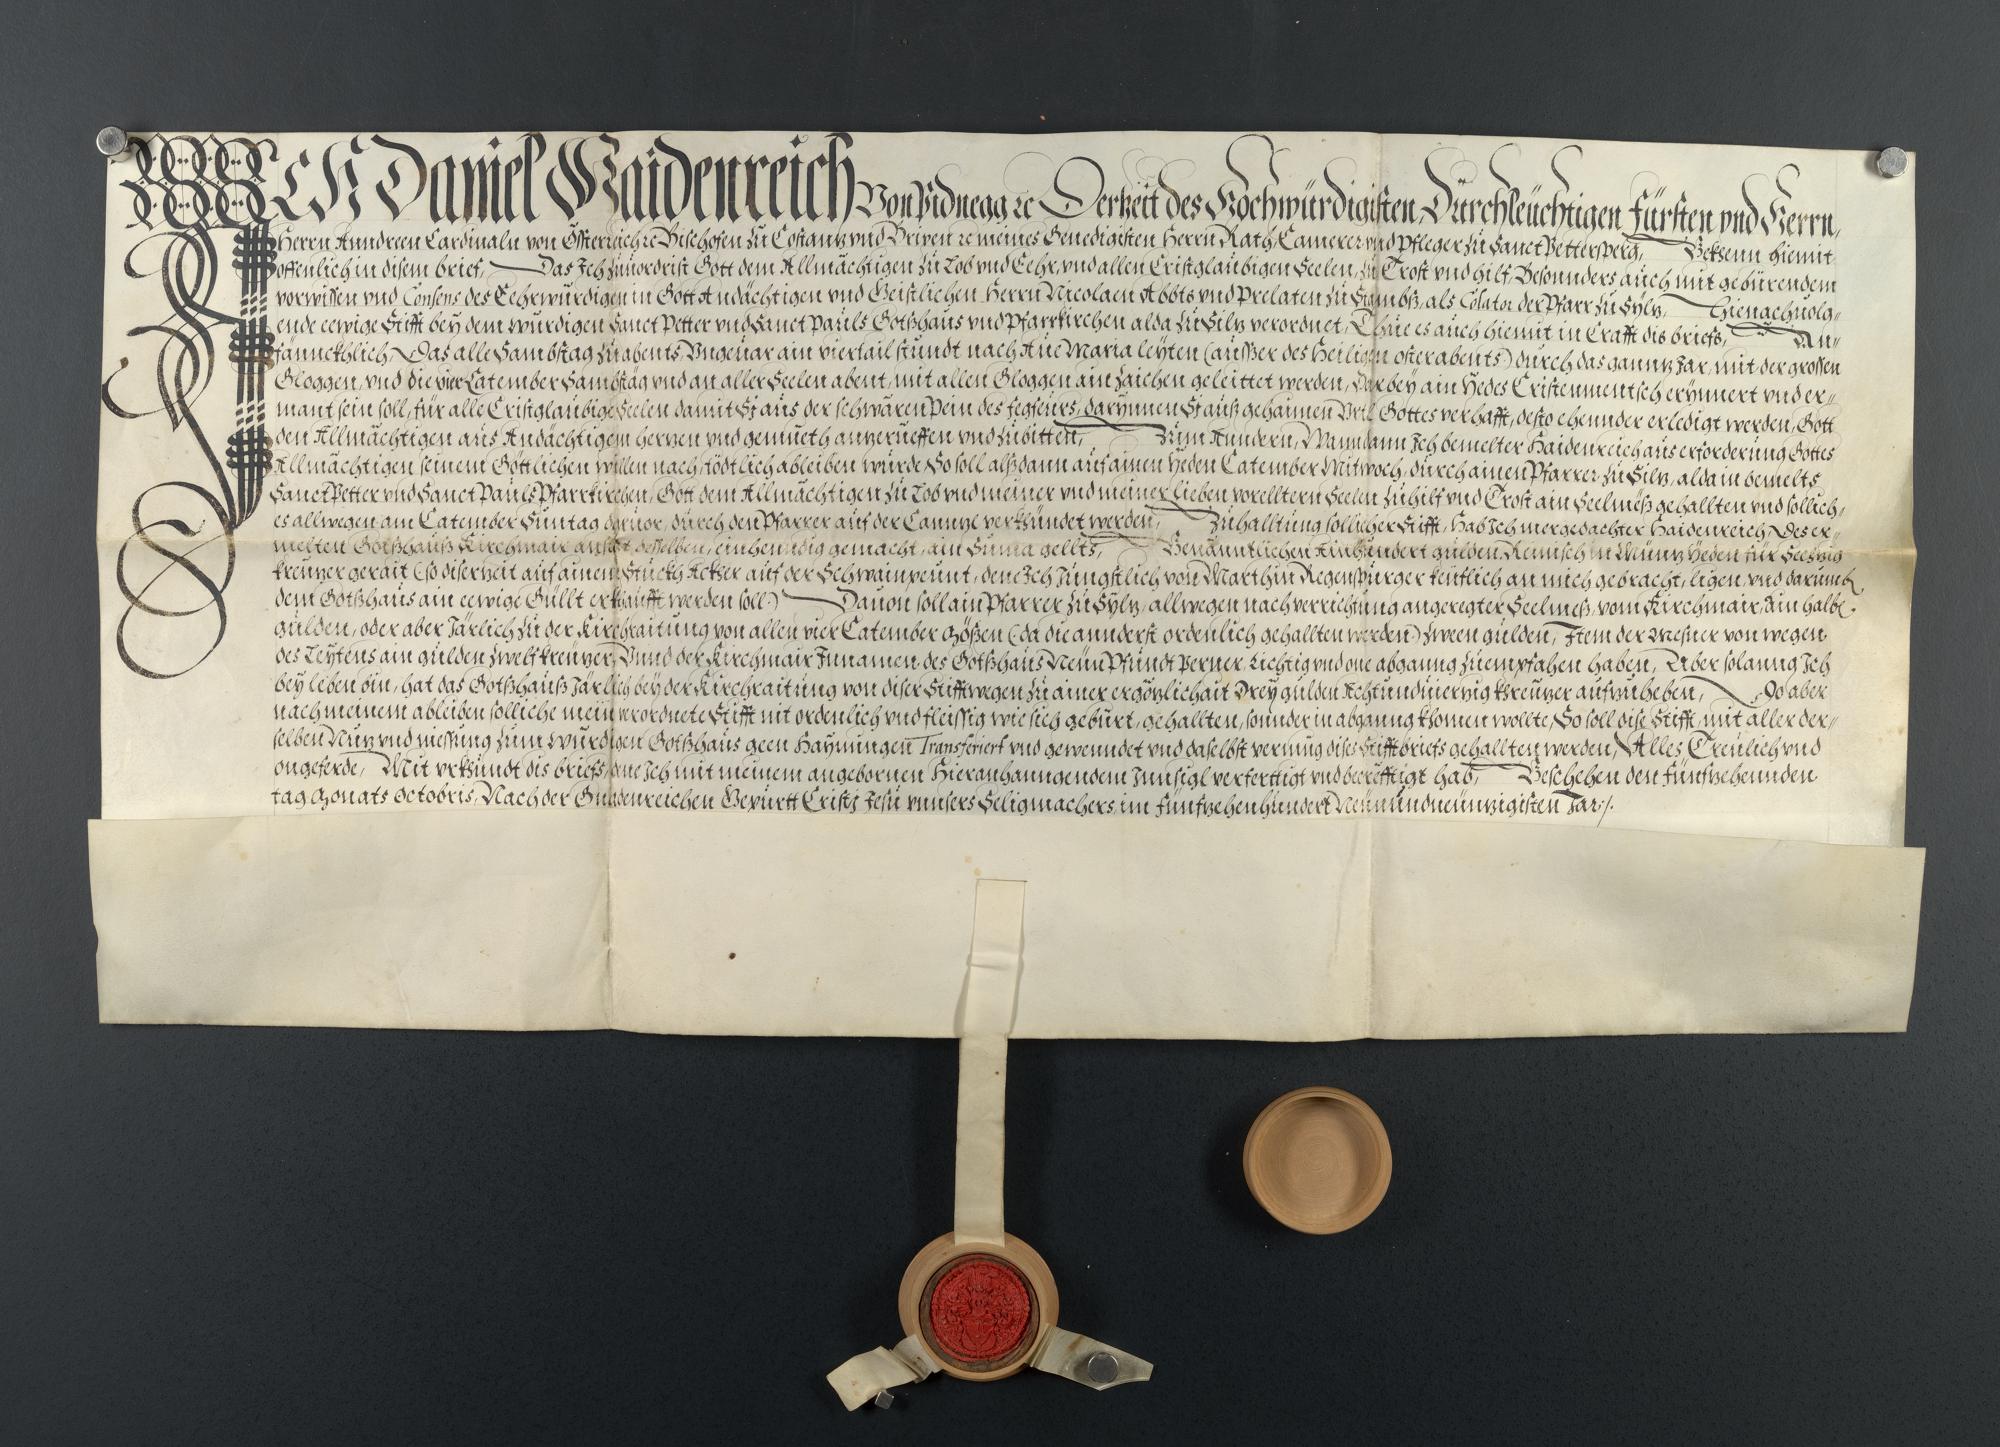 ICH Daniel Haidenreich Von Pidnegg ꝛc Derzeit des Hochwürdigisten, Dürchleüchtigen Fürsten vnd Herrn,
Herrn Anndreen Cardinaln von Össterreich ꝛc Bischofen zu Costantz vnd Brixen ꝛc meines Genedigisten Herrn Rath, Camerer vnd Pfleger zu Sanct Pettersperg, Bekhenn hiemit
offenlich in disem brief, Das Ich zuuordrist Gott dem Allmächtigen zu Lob vnd Eehr, vnd allen Cristglaubigen Seelen, zu Trost vnd hilf, Besonders auch mit gebürendem
vorwissen vnd Consens des Eehrwürdigen in Gott Andächtigen vnd Geistlichen Herrn Nicolaen Abbts vnd Prelaten zu Stambß, als Colator der Pfarr zu Sylz, Hienachuolg-
ende eewige Stifft bey dem würdigen Sanct Petter vnd Sanct Pauls Gotßhaus vnd Pfarrkirchen alda zu Silz verordnet, Thue es auch hiemit in Crafft dis briefs, An-
fännckhlich, Das alle Sambstag zu abents, Vngeuar ain viertail stundt nach Aue Maria leyten (ausser des Heiligen osterabents) durch das gannz Jar, mit der grossen
Gloggen, vnd die vier Catember Sambstäg vnd an aller Seelen abent, mit allen Gloggen ain zaichen geleittet werden, Darbey ain Yedes Cristenmentsch erynnert vnd er-
mant sein soll, für alle Cristglaubige Seelen damit Sy aus der schwären Pein des fegfeurs, darynnen Sy auß gehaimen Vrtl Gottes verhafft, desto ehennder erledigt werden, Gott
den Allmächtigen aus Andächtigem herzen vnd gemueth anzerueffen vnd zubitten, Zum Anndern, Wann dann Ich bemelter Haidenreich aus erforderung Gottes
Allmächtigen seinem Göttlichen willen nach, tödtlich ableiben würde So soll alßdann auf ainen Yeden Catember Mitwoch, durch ainen Pfarrer zu Silz, alda in bemelts
Sanct Petter vnd Sanct Pauls Pfarrkirchen, Gott dem Allmächtigen zu Lob vnd meiner vnd meiner lieben vorelltern Seelen zu hilf vnd Trost ain Seelmeß gehallten vnd sollich,
es allwegen am Catember Suntag daruor, durch den Pfarrer auf der Cannzl verkhündet werden, Zuhalltung sollicher Stifft, hab Ich mergedachter Haidenreich, Des er-
melten Gotßhauß Kirchmair anstat desselben, einhendig gemacht, ain Suma gellts, Benanntlichen Ainhundert gulden Reinisch in Münz Yeden für Sechzig
kreuzer gerait (so diser zeit auf ainem Stuckh Ackher auf der Schwainpeunt, den Ich Jungstlich von Marthin Regenspurger keuflich an mich gebracht, ligen, vnd darumb
dem Gotßhaus ain eewige Güllt erkhaufft werden soll) Dauon soll ain Pfarrer zu Sylz, allwegen nach verrichtung angeregter Seelmeß, vom Kirchmair, Ain halbe
gulden, oder aber Järlich zu der Kirchraitung von allen vier Catember Mößen (da die annderst ordenlich gehallten werden) zween gulden, Item der Mesner von wegen
des Leytens ain gulden zwelf kreuzer, Vnnd der Kirchmair Innamen des Gotßhaus Neün Pfundt Perner, richtig vnd one abganng zuempfahen haben, Aber solanng Ich
bey leben bin, hat das Gotßhauß Järlich bey der Kirchraitung von diser Stifft wegen zu ainer ergözlichait Drey gulden Achtundviierzig khreuzer aufzuheben, So aber
nach meinem ableiben solliche mein verordnete Stifft nit ordenlich vnd fleissig wie sich gebürt, gehallten, sonnder in abganng khomen wollte, So soll dise Stifft, mit aller der-
selben Nuz vnd niessung zum würdigen Gotßhaus geen Haymingen Transferiert vnd gewenndet vnd daselbst vermüg dises Stifftbriefs gehallten werden, Alles Treulich vnd
ongeferde, Mit vrkhundt dis briefs, den Ich mit meinem angebornen Hieranhanngendem Innsigl verferttigt vnd becrefftigt hab, Beschehen den Fünfzehennden
tag Monats Octobris, Nach der Gnadenreichen Gepürtt Cristj Jesu vnnsers Seligmachers, im Fünfzehenhundert Neünundneünzigisten Jar ./.